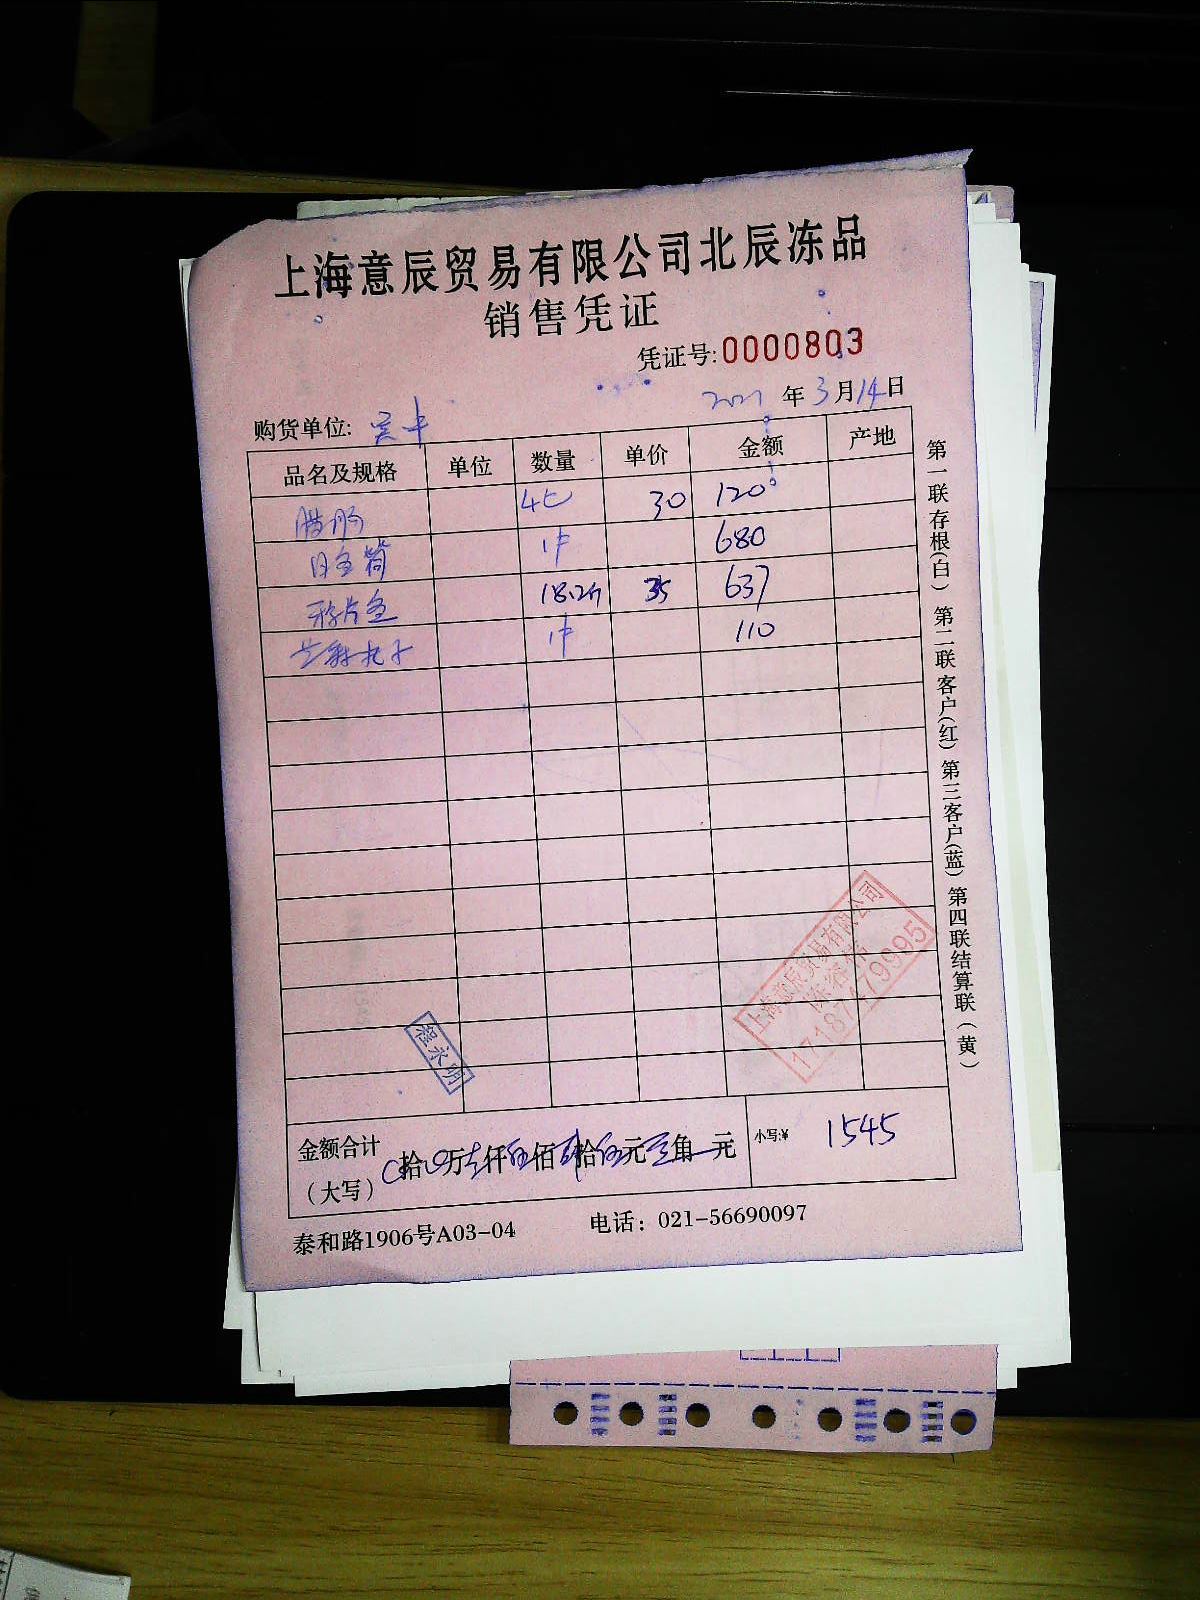 上海意辰贸易有限公司北辰冻品
销售凭证
凭证号:0000803
2021 年 3 月 14 日
购货单位:
品名及规格 单位 数量 单价 金额 产地
腊肠 4七 30 120
1件 680
18.2斤 35 637
1件 110
上海意辰贸易有限公司
17187479995
程永明
金额合计
(大写) 拾 万 仟 佰 拾 元 角 元 小写:¥ 1545
泰和路1906号A03-04 电话: 021-56690097
第一联存根(白) 第二联客户(红) 第三客户(蓝) 第四联结算联(黄)